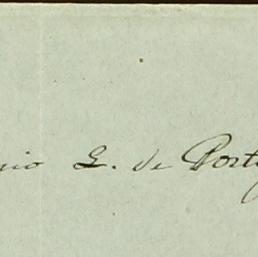 nio L. de Porty